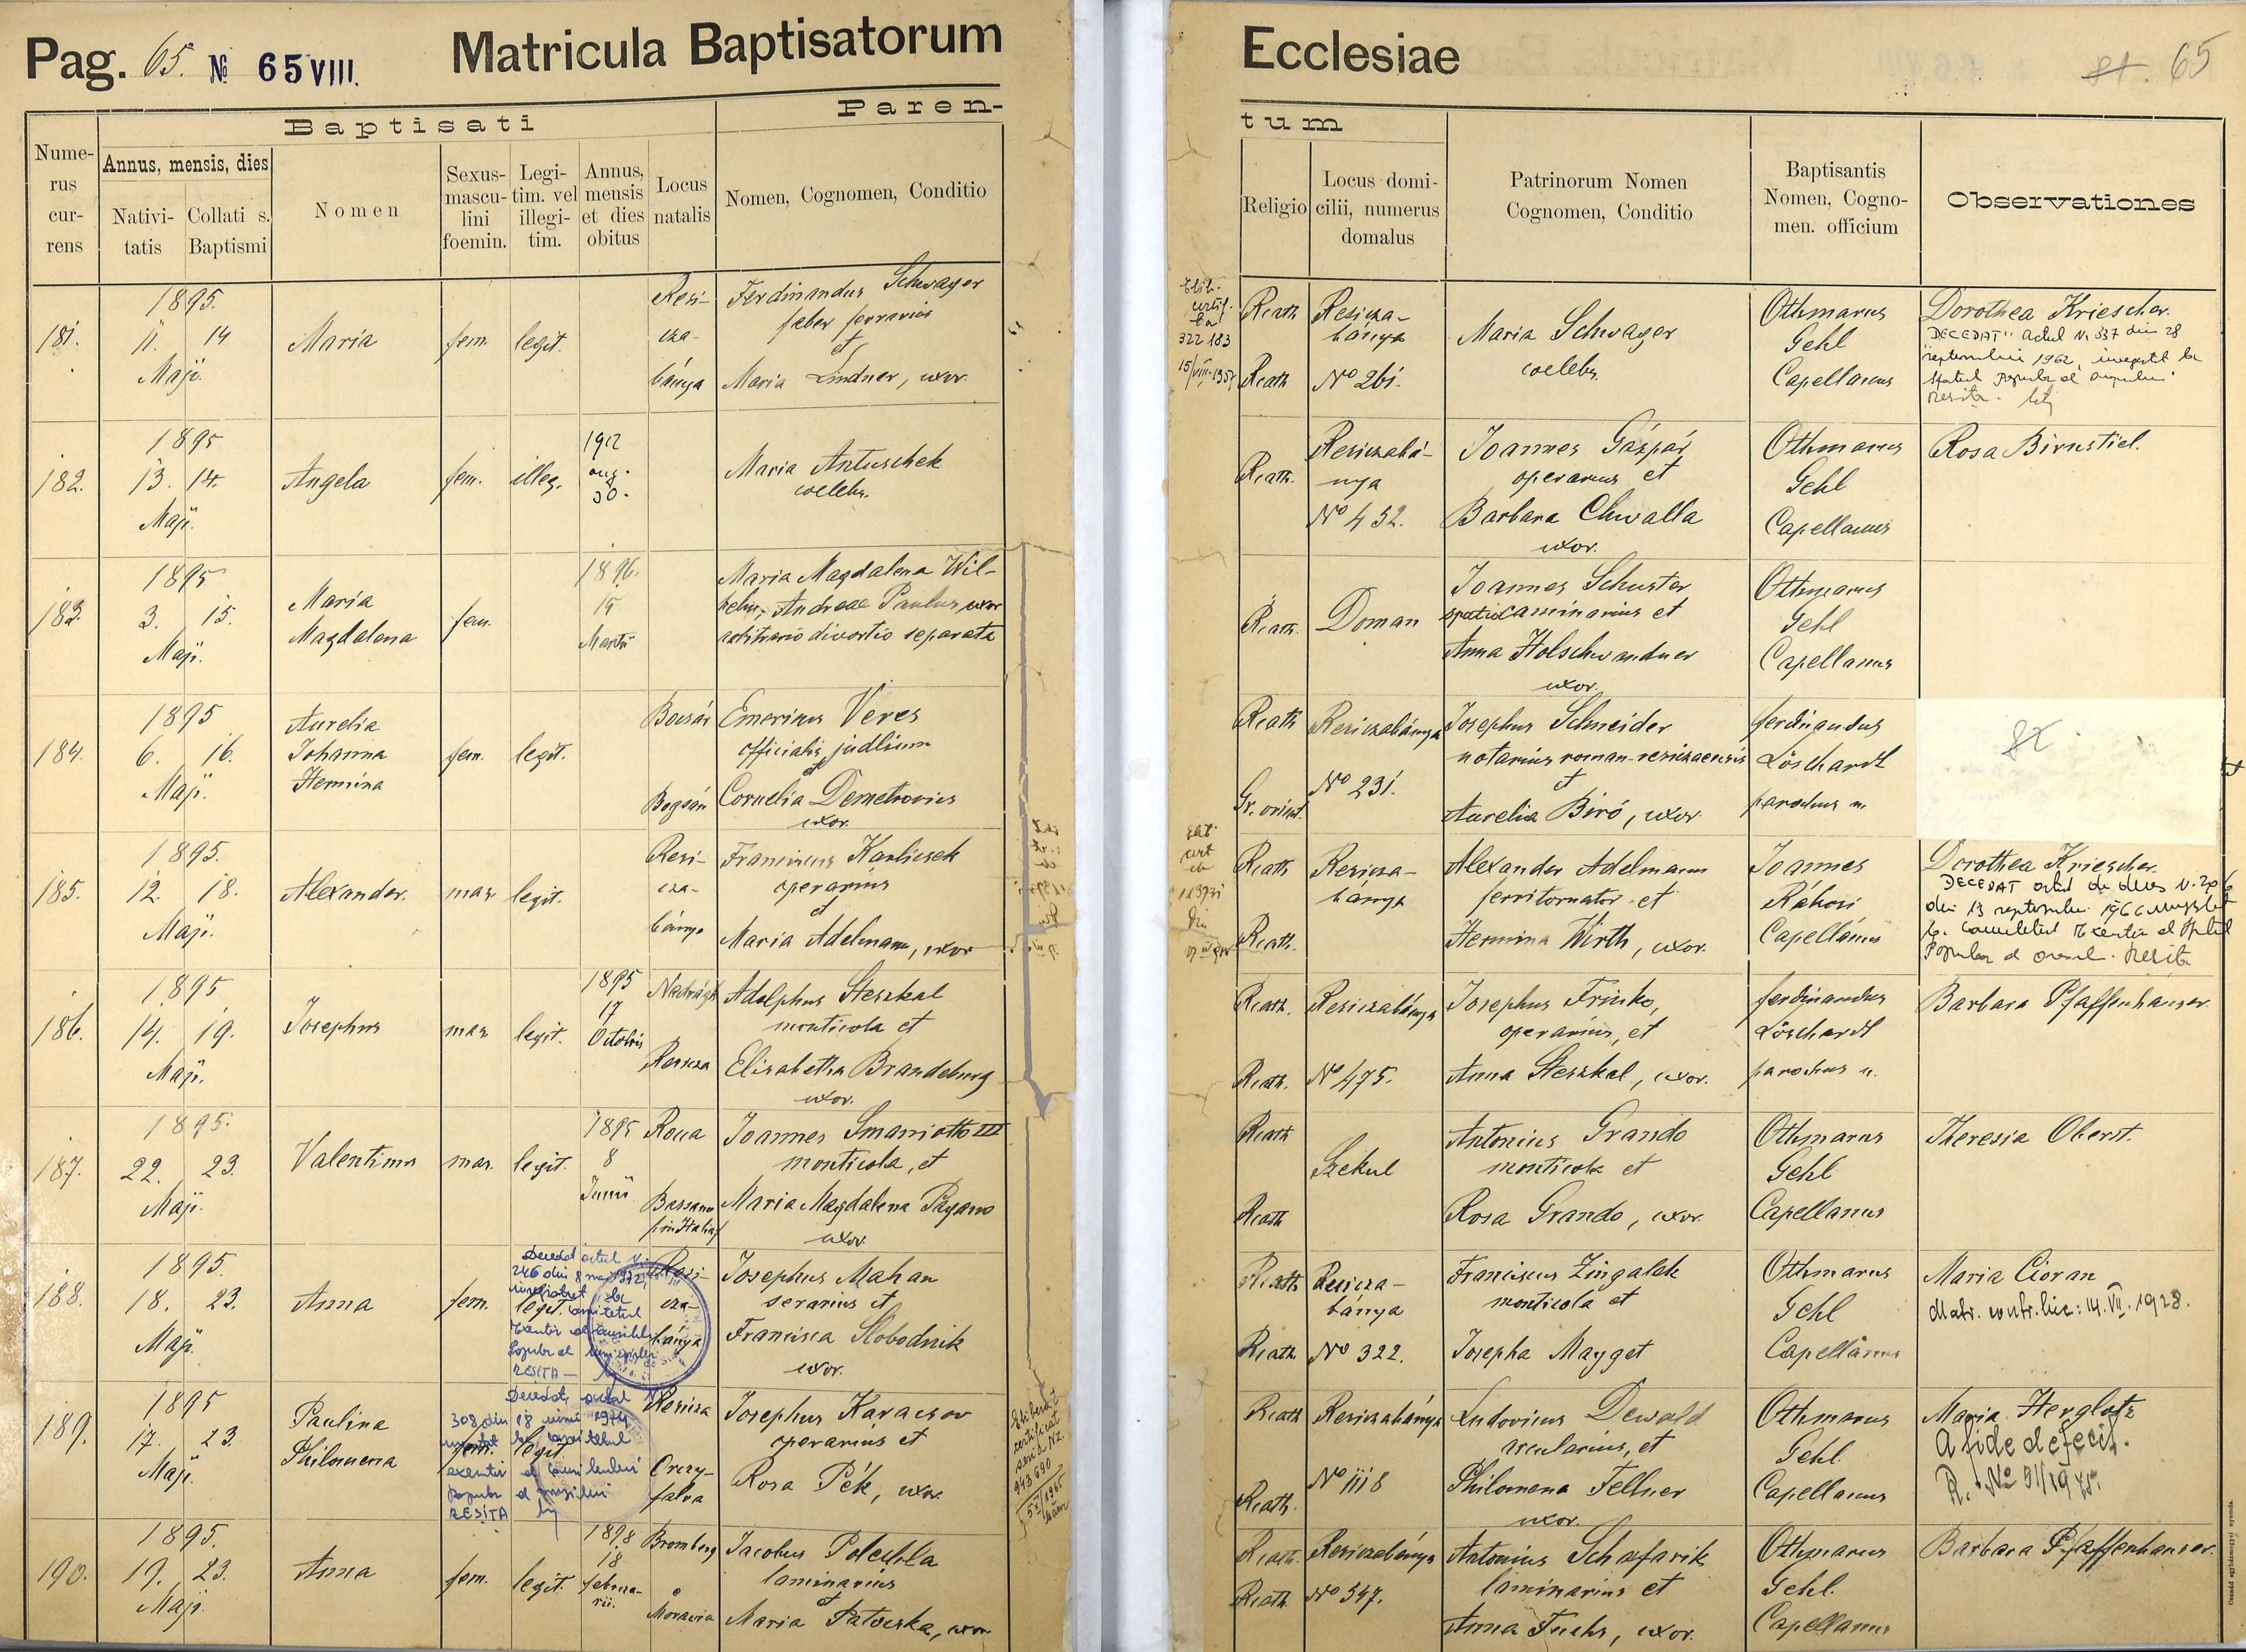 Pag. 65. № 65 VIII.
Matricula Baptisatorum
Ecclesiae
65
Baptisati
Paren-
tum
Nume-
rus
cur-
rens
Annus, mensis, dies
Nativi-
tatis
Collati s.
Baptismi
Nomen
Sexus-
mascu-
lini
foemin.
Legi-
tim. vel
illegi-
tim.
Annus,
mensis
et dies
obitus
Locus
natalis
Nomen, Cognomen, Conditio
Religio
Locus domi-
cilii, numerus
domalus
Patrinorum Nomen
Cognomen, Conditio
Baptisantis
Nomen, Cogno-
men. officium
Observationes
181.
1895.
11. 14
Maji.
Maria
fem. legit.
Resi-
cza-
bánya
Ferdinandus Schwager
faber ferrarius
et
Maria Lindner, uxor.
322183
R.cath.
R.cath.
Resicza-
bánya
No 261.
Maria Schwager
coelebs.
Othmarus
Gehl
Capellanus
Dorothea Kriescher.
DECEDAT actul N. 337 din 28
septembrie 1962, inregistrat la
Sfatul Popular al orașului
Resita.
182.
1895
13. 14.
Maji.
Angela
fem. illeg.
1912
aug.
30.
Maria Antuschek
coelebs.
R.cath.
Resiczabá-
nya
No 452.
Joannes Gáspár
operarius et
Barbara Chwalla
uxor.
Othmarus
Gehl
Capellanus
Rosa Birnstiel.
183.
1895
3. 15.
Maji.
Maria
Magdalena
fem.
1896.
15
Martii
Maria Magdalena Wil-
helm, Andreae Paulus uxor
arbitrario divortio separata
R.cath.
Doman
Joannes Schuster
caminarius et
Anna Holschwandner
uxor.
Othmarus
Gehl
Capellanus
184.
1895
6. 16.
Maji.
Aurelia
Johanna
Hermina
fem. legit.
Bogsán
Emericus Veres
officialis judlium
et
Cornelia Demetrovics
uxor.
R.cath.
Gr. orient.
Resiczabánya
No 231.
Josephus Schneider
notarius roman-resiczaensis
et
Aurelia Biró, uxor
Ferdinandus
Löschardt
parochus m.
185.
1895.
12. 18.
Maji.
Alexander
mas. legit.
Resi-
cza-
bánya
Franciscus Karlicsek
operarius
et
Maria Adelmann, uxor
R.cath.
R.cath.
Resicza-
bánya
Alexander Adelmann
ferritornator et
Hermina Wirth, uxor.
Joannes
Rákosi
Capellanus
Dorothea Kriescher.
DECEDAT actul de deces
din 13 septembrie 1966
Popular al oras. Resita
186.
1895
14. 19.
Maji.
Josephus
mas. legit.
1895
17
Octobris
Nadrágh
Resicza
Adolphus Steszkal
monticola et
Elisabetha Brandeburg
uxor.
R.cath.
R.cath.
Resiczabánya
No 475.
Josephus Frinko,
operarius, et
Anna Steszkal, uxor.
Ferdinandus
Löschardt
parochus m.
Barbara Pfaffenhauser.
187.
1895.
22. 23.
Maji.
Valentinus
mas. legit.
1895
8
Junii
Roca
Bassano
(in Italia)
Joannes Smaniotto III
monticola, et
Maria Magdalena Pagano
uxor.
R.cath
R.cath
Szekul
Antonius Grando
monticola et
Rosa Grando, uxor.
Othmarus
Gehl
Capellanus
Theresia Oberst.
188.
1895.
18. 23.
Maji.
Anna
fem. legit.
Decedat actul N.
246 din 8 mai 1972,
RESITA
Resi-
cza-
bánya
Josephus Mahan
serarius et
Francisca Slobodnik
uxor.
R.cath
R.cath
Resicza-
bánya
No 322.
Franciscus Zingalek
monticola et
Josepha Mayget
Othmarus
Gehl
Capellanus
Maria Cioran
Matr. contr. hic: 14. VII. 1928.
189.
1895
17. 23.
Maji.
Paulina
Philomena
fem. legit
Decedat, actul N.
308 din 18 iunie 1974
RESITA
Resicza
Orczy-
falva
Josephus Karacson
operarius et
Rosa Pék, uxor.
Eliberat
certificat
seria NZ.
943690
R.cath
R.cath.
Resiczabánya
No 1118
Ludovicus Dewald
arcularius, et
Philomena Fellner
uxor.
Othmarus
Gehl
Capellanus
Maria Herglotz
A fide defecit.
190.
1895.
19. 23.
Maji.
Anna
fem. legit.
1898
18
februa-
rii.
Bromberg
e
Moravia
Jacobus Polcula
laminarius
et
Maria Patocska, uxor
R.cath.
R.cath.
Resiczabánya
No 547.
Antonius Schafarik
laminarius et
Anna Fuchs, uxor.
Othmarus
Gehl.
Capellanus
Barbara Pfaffenhauser.